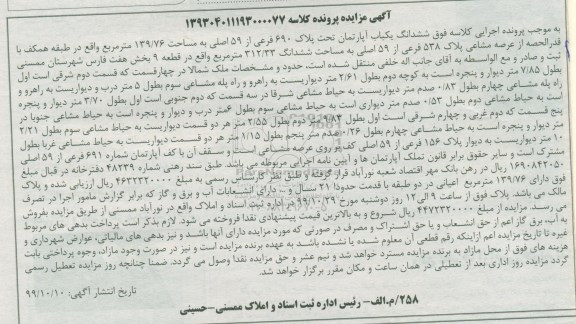 آگهی مزایده پرونده کلاسه ۱۳۹۳۰۴۰۱۱۱۹۳۰۰۰۰۷۷
به موجب پرونده اجرایی کلاسه فوق ششدانگ یکباب آپارتمان تحت پلاک ۶۹۰ فرعی از ۵۹ اصلی به مساحت ۱۳۹/۷۶ مترمربع واقع در طبقه همکف با
قدرالحصه از عرصه مشاعی پلاک ۵۳۸ فرعی از ۵۹ اصلی به مساحت ششدانگ ۳۱۲/۳۳ مترمربع واقع در قطعه ۹ بخش هفت فارس شهرستان ممسنی
ثبت و صادر و مع الواسطه به آقای جانب اله خلفی منتقل شده است، حدود و مشخصات ملک شمالا در چهارقسمت که قسمت دوم شرقی است اول
بطول ۷/۸۵ متر دیوار و پنجره است به کوچه دوم بطول ۲/۶۱ متر دیواریست به راهرو و راه پله مشاعی سوم بطول ۵ متر درب و دیواریست به راهرو و
راه پله مشاعی چهارم بطول ۰/۸۳ صدم متر دیواریست به حیاط مشاعی شرقا در سه قسمت که دوم جنوبی است اول بطول ۳/۷۰ متر دیوار و پنجره
است به حیاط مشاعی دوم بطول ۰/۵۳ صدم متر دیواری است به حیاط مشاعی سوم بطول ۶متر درب و دیوار و پنجره است به حیاط مشاعی جنوبا در
پنج قسمت که دوم غربی و چهارم شرقی است اول بطول ... متر دوم بطول ۳/۵۵ متر هر دو قسمت دیواریست به حیاط مشاعی سوم بطول ۲/۲۱
متر دیوار و پنجره است به حیاط مشاعی چهارم بطول ۰/۲۶ صدم متر پنجم بطول ۱/۱۵ متر هر دو قسمت دیواریست به حیاط مشاعی غربا بطول
۱۰ متر دیواریست به دیوار پلاک ۱۵۶ فرعی از ۵۹ اصلی کف بر روی عرصه مشاعی است و سقف آن با کف آپارتمان شماره ۶۹۱ فرعی از ۵۹ اصلی
مشترک است و سایر حقوق برابر قانون تملک آپارتمان ها و آیین نامه اجرایی مربوطه می باشد. طبق سند رهنی شماره ۴۸۲۳۹ دفترخانه در قبال مبلغ
۱۶۹۰۸۴۲۰۵۰ ریال در رهن بانک مهر اقتصاد شعبه نورآباد قرار گرفته و طبق نظر کارشناس رسمی به مبلغ ۴۴۶۳۲۳۲۰۰۰۰ ریال ارزیابی شده و پلاک
فوق دارای ۱۳۹/۷۶ مترمربع اعیانی در دو طبقه با قدمت حدودا ۲۱ سال و ... دارای انشعابات آب و برق و گاز که برابر گزارش مامور اجرا در تصرف
مالک می باشد. پلاک فوق از ساعت ۹ الی ۱۲ روز دوشنبه مورخ ۹۹/۱۰/۲۹ در اداره ثبت اسناد و املاک واقع در نورآباد ممسنی از طریق مزایده بفروش
می رسد. مزایده از مبلغ ۴۴۶۲۳۲۰۰۰۰ ریال شروع و به بالاترین قیمت پیشنهادی نقدا فروخته می شود. لازم بذکر است پرداخت بدهی های مربوط
به آب، برق گاز اعم از حق انشعاب و یا حق اشتراک و مصرف در صورتی که مورد مزایده دارای آنها باشد و نیز بدهی های مالیاتی، عوارض شهرداری و
غیره تا تاریخ مزایده اعم ازاینکه رقم قطعی آن معلوم شده یا نشده باشد به عهده برنده مزایده است و نیز در صورت وجود مازاد، وجوه پرداختی بابت
هزینه های فوق از محل مازاد به برنده مزایده مسترد خواهد شد و نیم عشر و حق مزایده نقدا وصول می گردد. ضمنا چنانچه روز مزایده تعطیل رسمی
گردد مزایده روز اداری بعد از تعطیلی در همان ساعت و مکان مقرر برگزار خواهد شد.
تاریخ انتشار آگهی: ۹۹/۱۰/۱۰
۲۵۸/م.الف- رئیس اداره ثبت اسناد و املاک ممسنی-حسینی